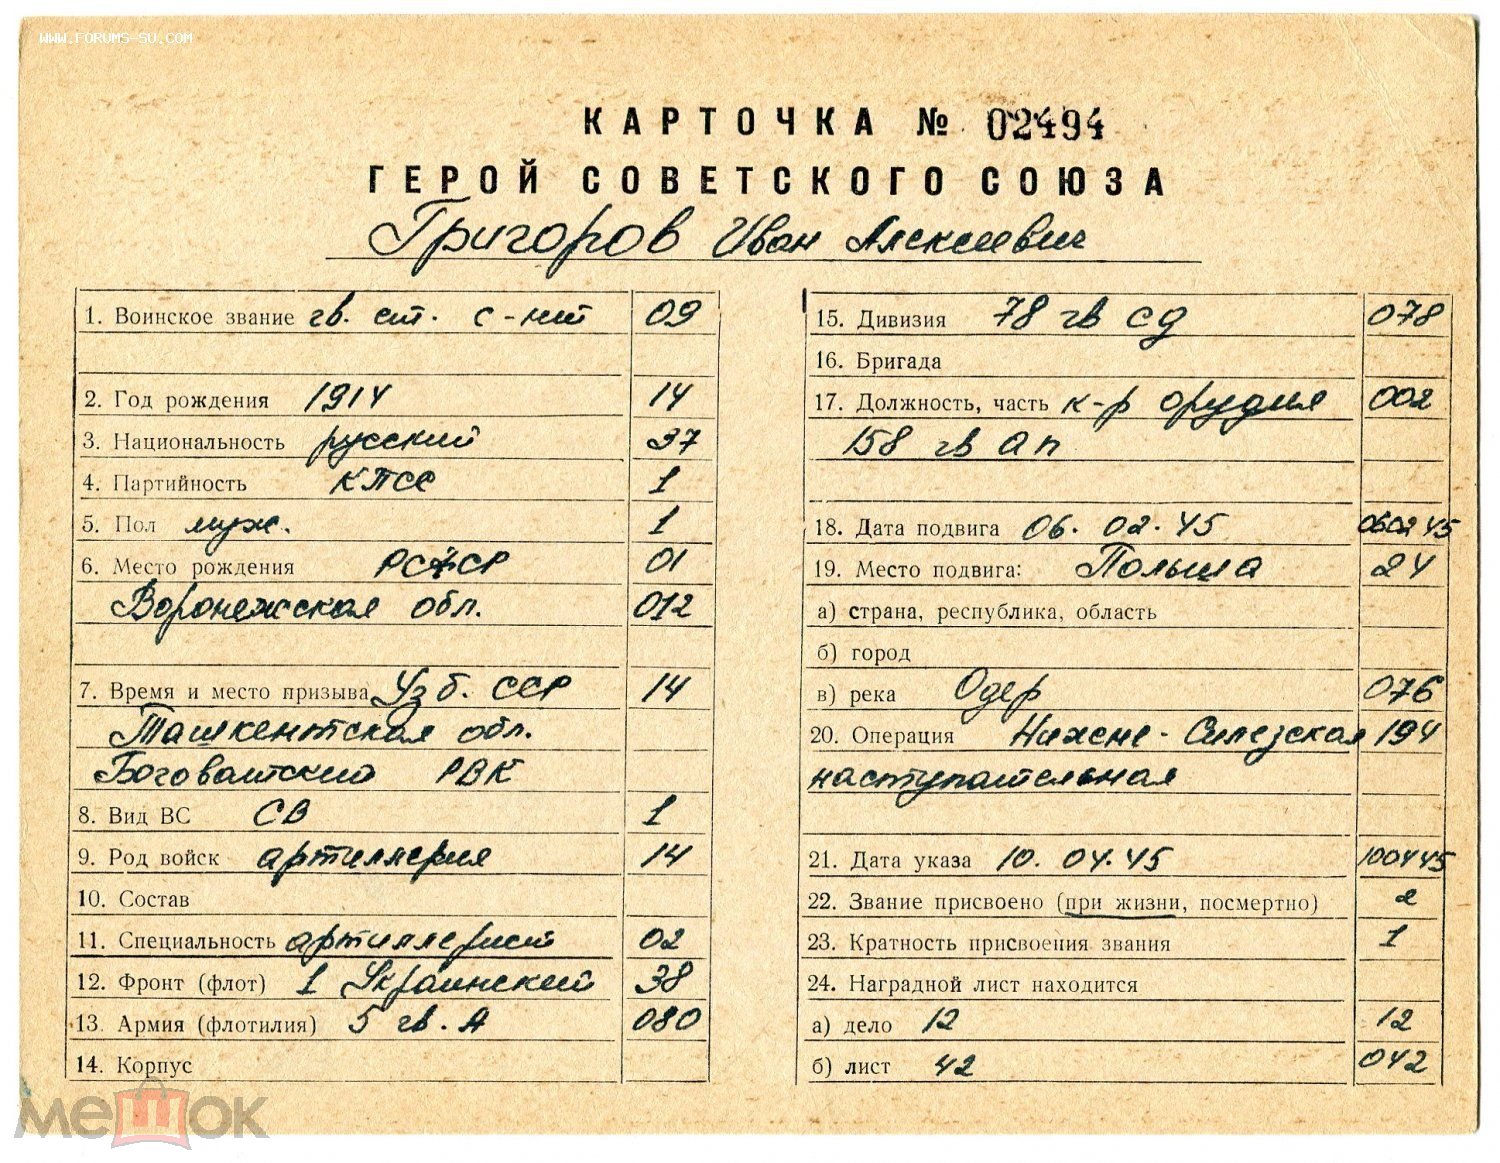 WWW.FORUMS-SU.COM
КАРТОЧКА № 02494
ГЕРОЙ СОВЕТСКОГО СОЮЗА
Григоров Иван Алексеевич
1. Воинское звание гв. ст. с-нт 09
2. Год рождения 1914 14
3. Национальность русский 37
4. Партийность КПСС 1
5. Пол муж. 1
6. Место рождения РСФСР 01
Воронежская обл. 012
7. Время и место призыва Узб. ССР 14
Ташкентская обл.
Боговатский РВК
8. Вид ВС СВ 1
9. Род войск артиллерия 14
10. Состав
11. Специальность артиллерист 02
12. Фронт (флот) 1 Украинский 38
13. Армия (флотилия) 5 гв. А 080
14. Корпус
15. Дивизия 78 гв сд 078
16. Бригада
17. Должность, часть к-р орудия 002
158 гв ап
18. Дата подвига 06. 02. 45 060245
19. Место подвига: Польша 24
а) страна, республика, область
б) город
в) река Одер 076
20. Операция Нижне-Силезская 194
наступательная
21. Дата указа 10. 04. 45 100445
22. Звание присвоено (при жизни, посмертно) 2
23. Кратность присвоения звания 1
24. Наградной лист находится
а) дело 12 12
б) лист 42 042
мешок